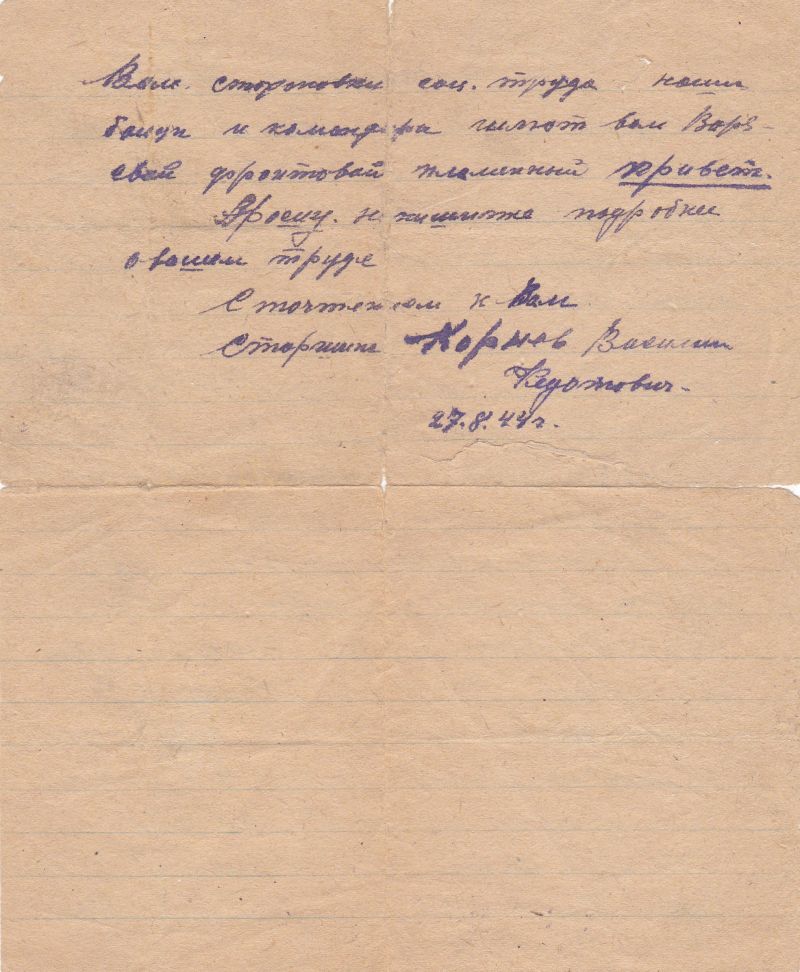 Вам. стахановки соц. труда наши
бойцы и командира шлют вам Варя
свой фронтовой пламенный привет.
Прошу. напишите подробней
о вашем труде
С почтением к Вам.
Старшина Корнов Василий
Федотович.
27.8.44г.